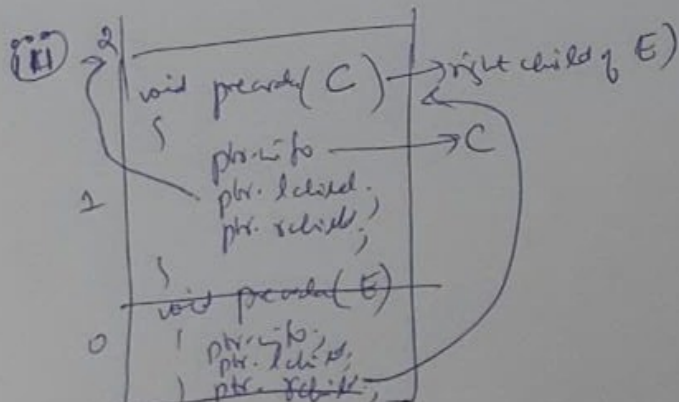 (iii) 2
void preorder( C ) → right child of E)
{
ptr.info → C
1 ptr. lchild;
ptr. rchild;
}
void preorder( E )
0 { ptr.info;
ptr. lchild;
} ptr. rchild;